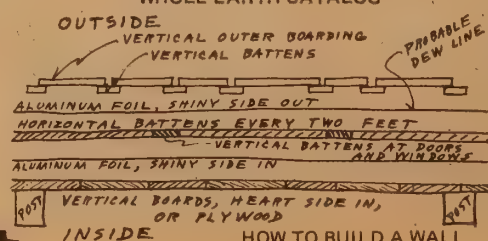 WHOLE EARTH CATALOG
OUTSIDE
VERTICAL OUTER BOARDING
VERTICAL BATTENS
PROBABLE
DEW LINE
ALUMINUM FOIL, SHINY SIDE OUT
HORIZONTAL BATTENS EVERY TWO FEET
VERTICAL BATTENS AT DOORS
AND WINDOWS
ALUMINUM FOIL, SHINY SIDE IN
POST
VERTICAL BOARDS, HEART SIDE IN,
OR PLYWOOD
POST
INSIDE
HOW TO BUILD A WALL